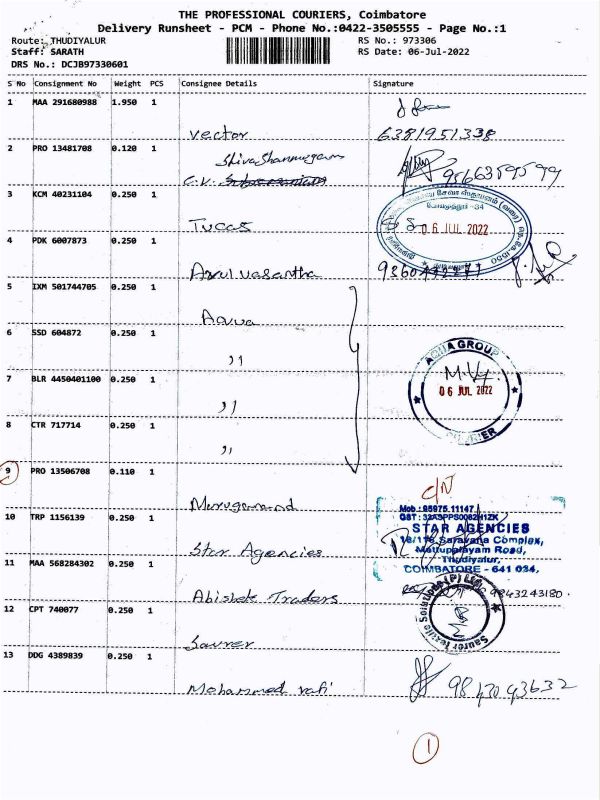 THE PROFESSIONAL COURIERS, Coimbatore
Delivery Runsheet - PCM - Phone No.:0422-3505555 - Page No.:1
Route: THUDIYALUR
Staff: SARATH
DRS No.: DCJB97330601
RS No.: 973306
RS Date: 06-Jul-2022
S No Consignment No Weight PCS Consignee Details Signature
1 MAA 291680988 1.950 1
Vector 6381951338
2 PRO 13481708 0.120 1
Shiva Shanmugam
C.V. 9566359599
3 KCM 40231104 0.250 1
Tucas
கோயமுத்தூர் -34
06 JUL 2022
4 PDK 6007873 0.250 1
Arul vasantha
5 IXM 501744705 0.250 1
Aqua
6 SSD 604872 0.250 1
,,
AQUA GROUP
M.Vy.
06 JUL 2022
7 BLR 4450401100 0.250 1
,,
8 CTR 717714 0.250 1
,,
9 PRO 13506708 0.110 1
C/N
Muruganand
Mob : 95975 11147
10 TRP 1156139 0.250 1
STAR AGENCIES
Saravana Complex,
Mettupalayam Road,
Thudiyalur,
COIMBATORE - 641 034.
Star Agencies
11 MAA 568284302 0.250 1
Abishek Traders 9843243180.
12 CPT 740077 0.250 1
Saurer Textile Solutions (P) Ltd.
Saurer
13 DDG 4389839 0.250 1
Mohammed rafi 9843043632
1